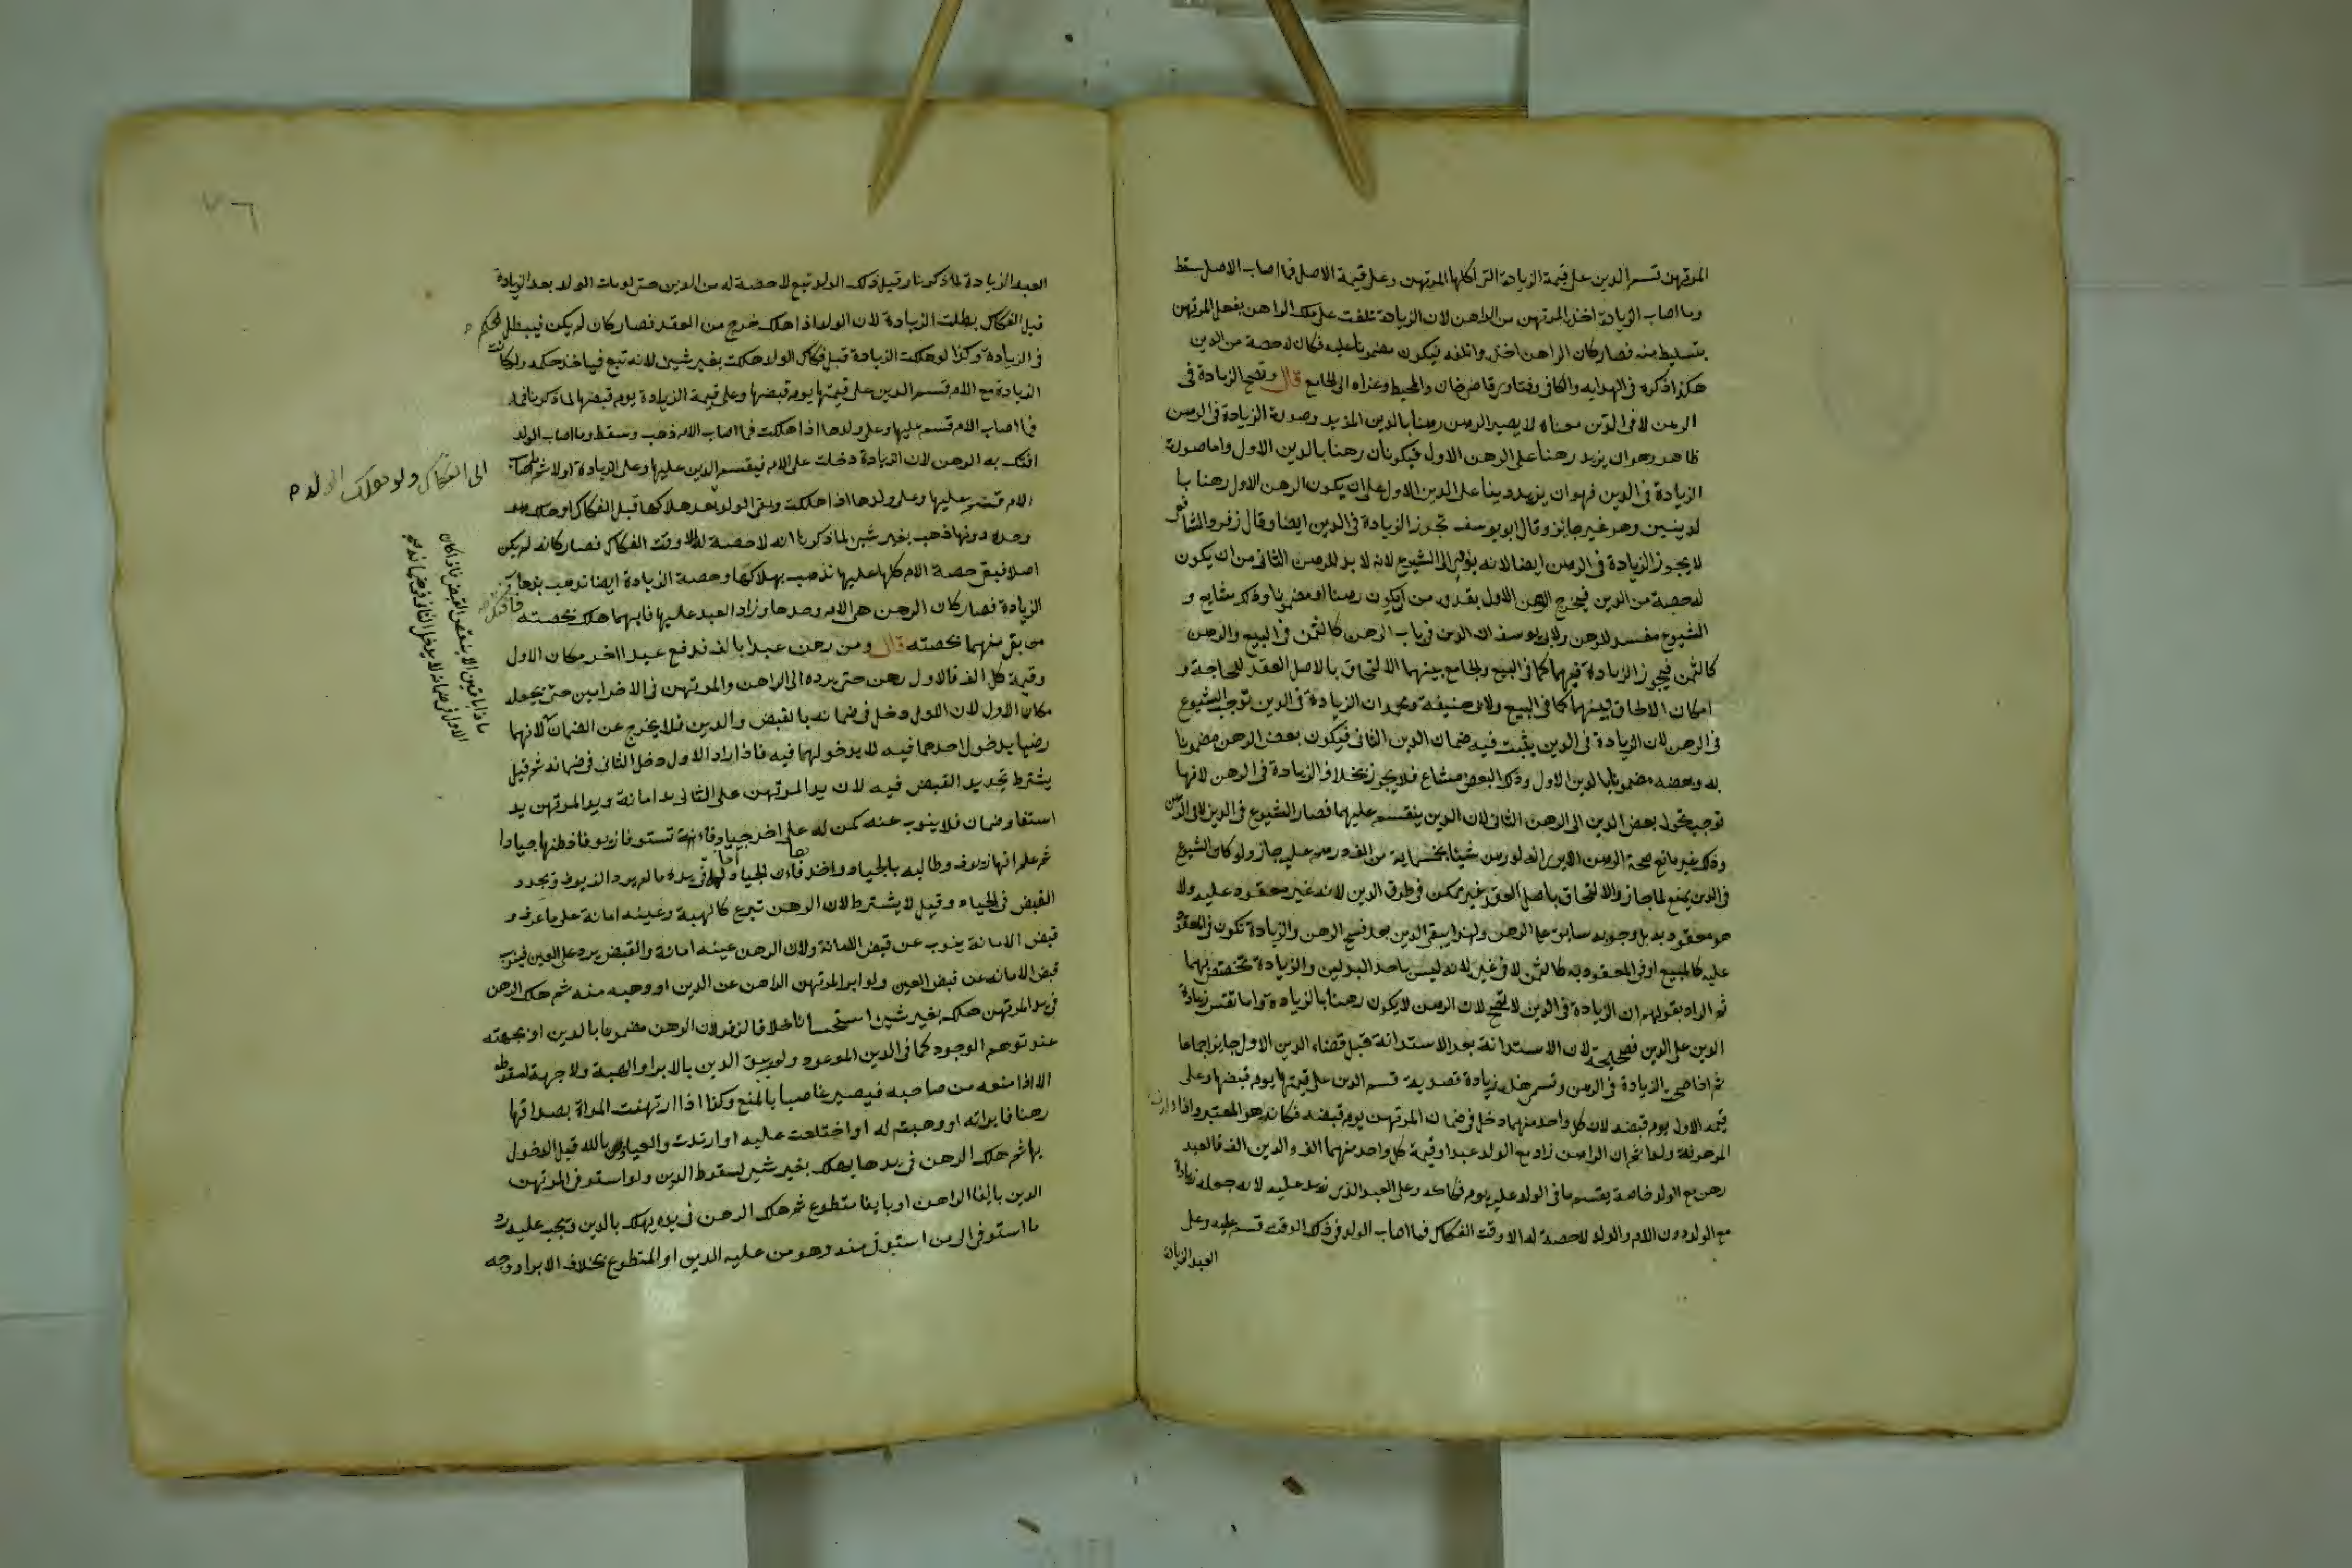 المرتهن قسم الدين على قيمة الزيادة التى اكلها المرتهن وعلى قيمة الاصل فما اصاب الاصل سقط
وما اصاب الزيادة اخذه المرتهن من الراهن لان الزيادة تلفت على ملك الراهن بفعل المرتهن
بتسليط منه فصار كان الراهن اخذه واتلفه فيكون مضمونا عليه فكان له حصة من الدين
هكذا ذكره فى الهدايه والكافى وفتاوى قاضى خان والمحيط وعزاه الى الجامع قال وتصح الزيادة فى
الرهن لا فى الدين معناه لا يصير الرهن رهنا بالدين المزيد وصورة الزيادة فى الرهن
ظاهر وهو ان يزيد رهنا على الرهن الاول فيكونان رهنا بالدين الاول واما صورة
الزيادة فى الدين فهو ان يزيد دينا على الدين الاول على ان يكون الرهن الاول رهنا با
لدينين وهو غير جائز وقال ابو يوسف تجوز الزيادة فى الدين ايضا وقال زفر والشافعى
لا يجوز الزيادة فى الرهن ايضا لانه يؤدى الى الشيوع لانه لا بد للرهن الثانى من ان يكون
له حصة من الدين فيخرج الرهن الاول بقدره من ان يكون رهنا او مضمونا وذلك شايع و
الشيوع مفسد للرهن ولابى يوسف ان الدين فى باب الرهن كالثمن فى البيع والرهن
كالثمن فيجوز الزيادة فيهما كما فى البيع والجامع بينهما الالتحاق بالاصل العقد للحاجة و
امكان الالحاق بينهما كما فى البيع ولابى حنيفة ومحمد ان الزيادة فى الدين توجب الشيوع
فى الرهن لان الزيادة فى الدين يثبت فيه ضمان الدين الثانى فيكون بعض الرهن مضمونا
به وبعضه مضمونا بالدين الاول وذلك البعض مشاع فلا يجوز بخلاف الزيادة فى الرهن لانها
توجب تحول بعض الدين الى الرهن الثانى لان الدين ينقسم عليهما فصار الشيوع فى الدين لا فى الرهن
وذلك غير مانع صحة الرهن الايرى انه لو رهن شيئا بخمسماية من الف درهم عليه جاز ولو كان الشيوع
فى الدين يمنع لما جاز والالتحاق باصل العقد غير ممكن فى طرف الدين لانه غير معقود عليه ولا
هو معقود به بل وجوبه سابق على الرهن ولهذا يبقى الدين بعد فسخ الرهن والزيادة تكون فى المعقود
عليه كالمبيع او فى المعقود به كالثمن لا فى غيره لانه ليس باحد البدلين والزيادة تختص بهما
ثم المراد بقولهم ان الزيادة فى الدين لا تصح لان الرهن لا يكون رهنا بالزيادة واما نفس زيادة
الدين على الدين فصحيحة لان الاستدانة بعد الاستدانة قبل قضاء الدين الاول جايز اجماعا
ثم اذا صحت الزيادة فى الرهن وتسمى هذه زيادة قصدية قسم الدين على قيمتها يوم قبضها وعلى
قيمة الاول يوم قبضه لان كل واحد منهما دخل فى ضمان المرتهن يوم قبضه فكان هو المعتبر واذا ولدت
المرهونة ولدا ثم ان الراهن زاد مع الولد عبدا وقيمة كل واحد منهما الف والدين الف فالعبد
رهن مع الولد خاصة يقسم ما فى الولد عليه يوم فكاكه وعلى العبد الذى زيد عليه لانه جعله زيادة
مع الولد دون الام والولد لا حصة له الا وقت الفكاك فما اصاب الولد فى ذلك الوقت قسم عليه وعلى
العبد الزيادة
العبد الزيادة لما ذكرنا وقبل ذلك الولد تبع لا حصة له من الدين حتى لو مات الولد بعد الزيادة
قبل الفكاك بطلت الزيادة لان الولد اذا هلك خرج من العقد فصار كان لم يكن فيبطل الحكم
فى الزيادة وكذا لو هلكت الزيادة قبل فكاك الولد هلكت بغير شىء لانه تبع فياخذ حكمه ولو كانت
الزيادة مع الام قسم الدين على قيمتها يوم قبضها وعلى قيمة الزيادة يوم قبضها لما ذكرنا
فما اصاب الام قسم عليها وعلى ولدها اذا هلكت فما اصاب الام ذهب وسقط وما اصاب الولد
افتك به الرهن لان الزيادة دخلت على الام فيقسم الدين عليها وعلى الزيادة اولا ثم ما اصاب
الام قسم عليها وعلى ولدها اذا هلكت وبقى الولد بعد هلاكها قبل الفكاك او هلك
الى الفكاك ولو هلك الولد
وحده دونها ذهب بغير شىء لما ذكرنا انه لا حصة له الا وقت الفكاك فصار كانه لم يكن
اصلا فبقى حصة الام كلها عليها تذهب بهلاكها وحصة الزيادة ايضا تذهب بهلاك
الزيادة فصار كان الرهن هى الام وحدها وزاد العبد عليها فايهما هلك بحصته فافتك
من بقى منهما بحصته قال ومن رهن عبدا بالف فدفع عبدا اخر مكان الاول
وقيمة كل الف فالاول رهن حتى يرده الى الراهن والمرتهن فى الاخر امين حتى يجعله
مكان الاول لان الاول دخل فى ضمانه بالقبض والدين فلا يخرج عن الضمان لانهما
رضيا بدخول احدهما فيه لا بدخولهما فيه فاذا اراد الاول دخل الثانى فى ضمانه ثم قيل
يشترط تجديد القبض فيه لان يد المرتهن على الثانى يد امانة ويد المرتهن يد
استيفا وضمان فلا ينوب عنه كمن له على اخر جياد فاستوفا زيوفا ظنها جيادا
ثم علم انها زيوف وطالبه بالجياد واخذها فان الجياد امانة فى يده ما لم يرد الزيوف ويجدد
القبض فى الجياد وقيل لا يشترط لان الرهن تبرع كالهبة وعينه امانة على ما عرف و
قبض الامانة ينوب عن قبض الامانة ولان الرهن عينه امانة والقبض يرد على العين فينوب
قبض الامانه عن قبض العين ولو ابرا المرتهن الراهن عن الدين او وهبه منه ثم هلك الرهن
فى يد المرتهن هلك بغير شىء استحسانا خلافا لزفر لان الرهن مضمون بالدين او بجهته
عند توهم الوجود كما فى الدين الموعود ولم يبق الدين بالابراء والهبة ولا جهة لسقوطه
الا اذا منعه من صاحبه فيصير غاصبا بالمنع وكذا اذا ارتهنت المراة بصداقها
رهنا فابراته او وهبته له او اختلعت عليه او ارتدت والعياذ بالله قبل الدخول
بها ثم هلك الرهن فى يدها يهلك بغير شىء لسقوط الدين ولو استوفى المرتهن
الدين بايفا الراهن او بايفا متطوع ثم هلك الرهن فى يده يهلك بالدين ويجب عليه رد
ما استوفى الى من استوفى منه وهو من عليه الدين او المتطوع بخلاف الابراء ووجه